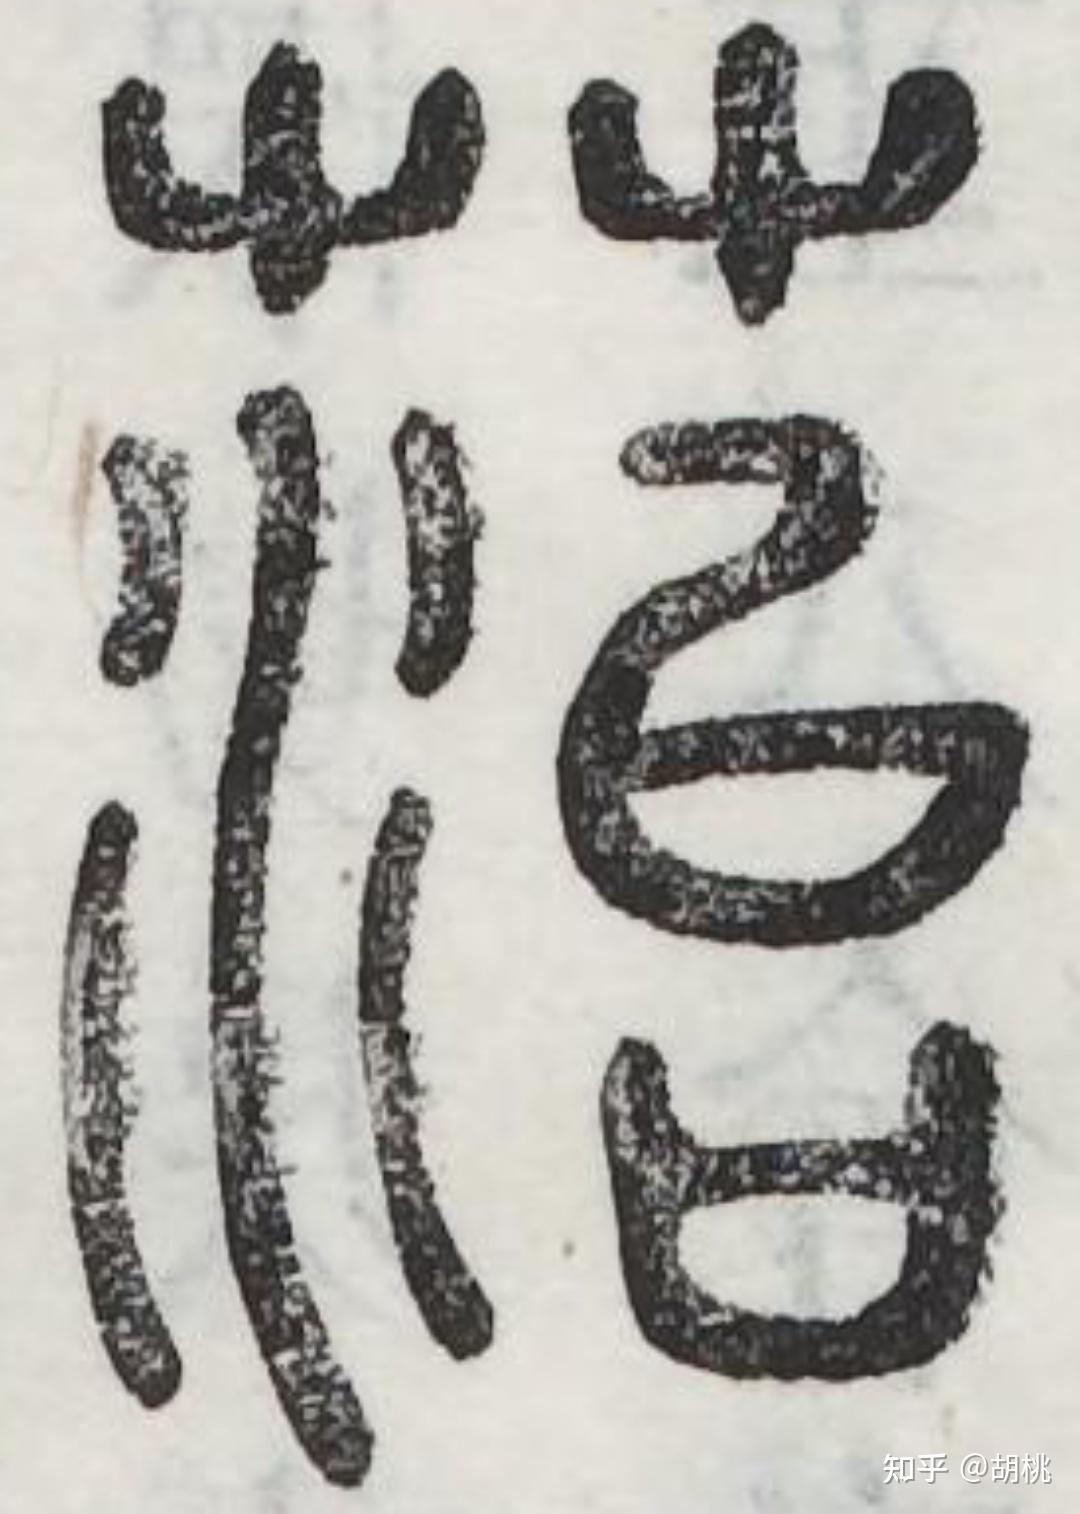 菭
知乎 @胡桃